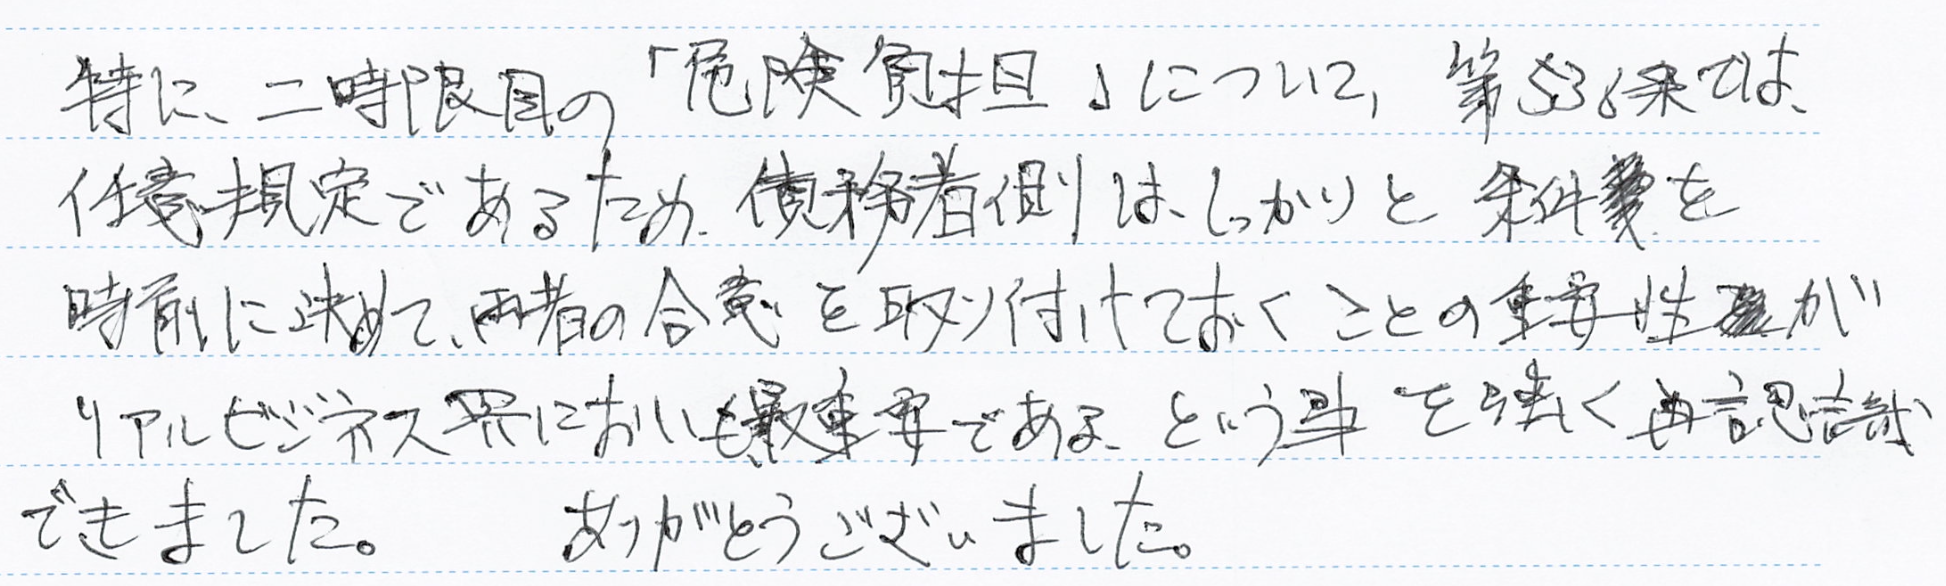 特に、二時限目の「危険負担」について、第536条では、
任意規定であるため、債務者側は、しっかりと条件等を
時前に決めて、両者の合意を取り付けておくことの重要性が
リアルビジネス界においても最重要である、という事を強く再認識
できました。 ありがとうございました。